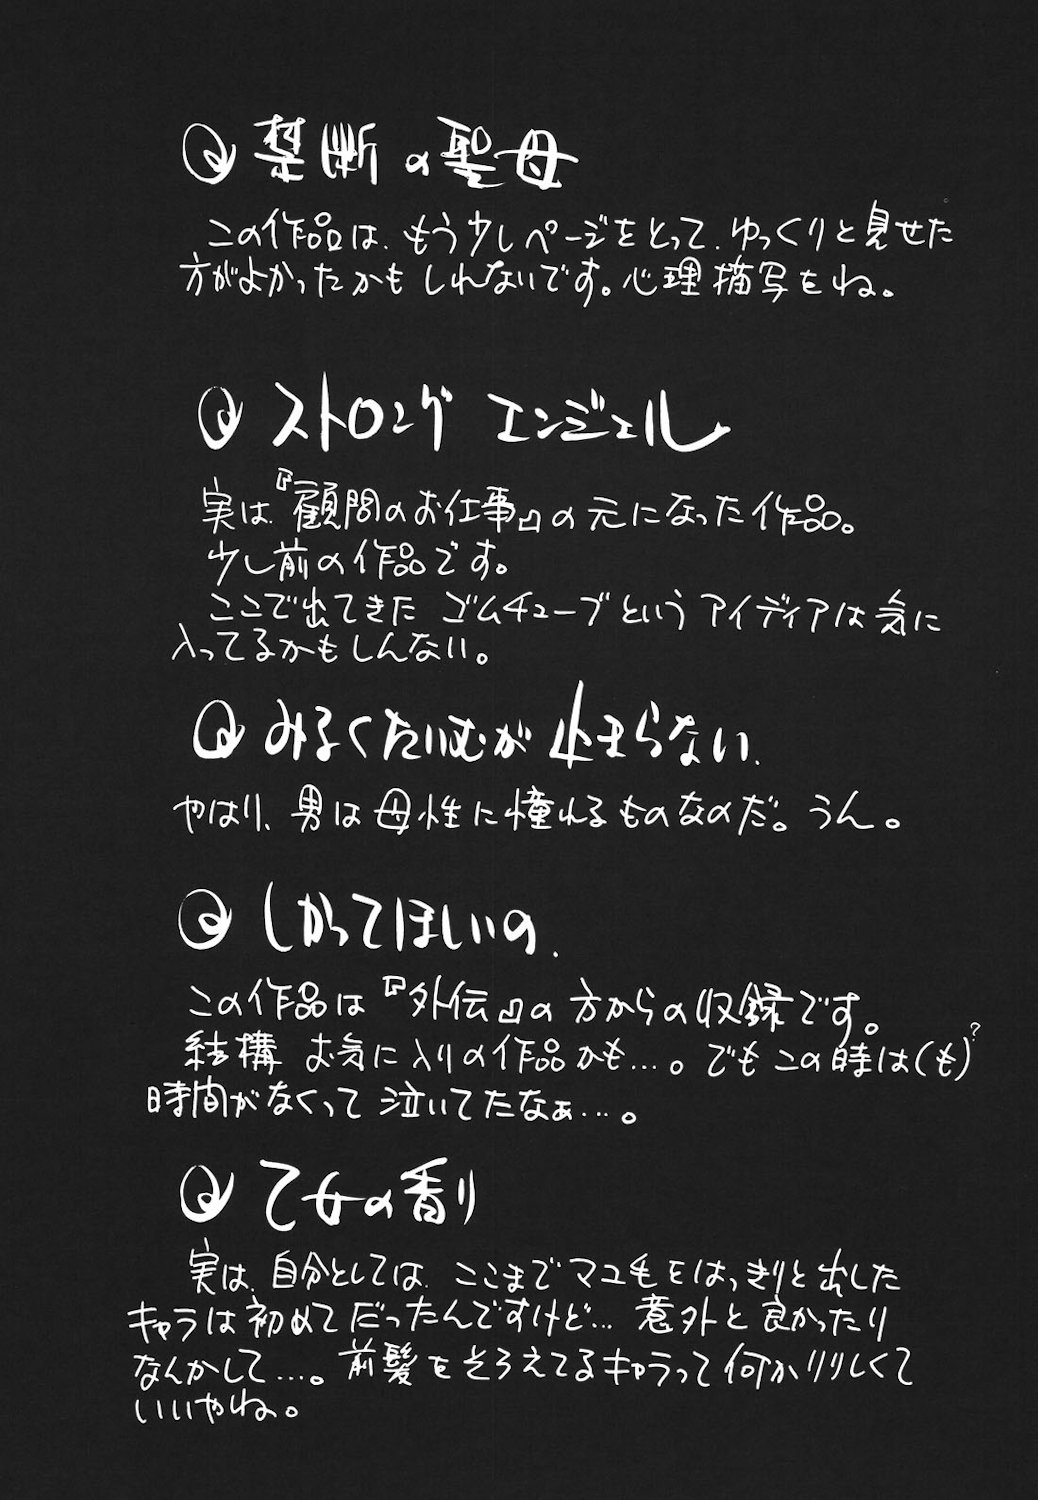 禁断の聖母
この作品は、もう少しページをとって、ゆっくりと見せた
方がよかったかもしれないです。心理描写をね。
ストロング エンジェル
実は、『顧問のお仕事』の元になった作品。
少し前の作品です。
ここで出てきた ゴムチューブというアイディアは気に
入ってるかもしんない。
みるくたいむが止まらない、
やはり、男は母性に憧れるものなのだ。うん。
しかってほしいの、
この作品は『外伝』の方からの収録です。
結構 お気に入りの作品かも…。でもこの時は(も)?
時間がなくって泣いてたなぁ…。
乙女の香り
実は、自分としては、ここまでマユ毛をはっきりと出した
キャラは初めてだったんですけど… 意外と良かったり
なんかして…。前髪をそろえてるキャラって何かりりしくて
いいやね。